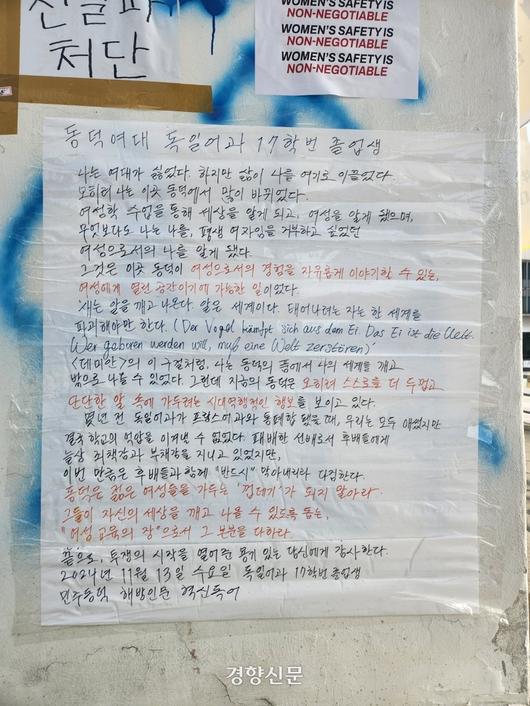 처단
WOMEN'S SAFETY IS
NON-NEGOTIABLE
WOMEN'S SAFETY IS
NON-NEGOTIABLE
WOMEN'S SAFETY IS
NON-NEGOTIABLE
동덕여대 독일어과 17학번 졸업생
나는 여대가 싫었다. 하지만 삶이 나를 여기로 이끌었다.
오히려 나는 이곳 동덕에서 많이 바뀌었다.
여성학 수업을 통해 세상을 알게 되고, 여성을 알게 됐으며,
무엇보다도 나는 나를, 평생 여자임을 거부하고 싶었던
여성으로서의 나를 알게 됐다.
그것은 이곳 동덕이 여성으로서의 경험을 자유롭게 이야기할 수 있는,
여성에게 열린 공간이기에 가능한 일이었다.
'새는 알을 깨고 나온다. 알은 세계이다. 태어나려는 자는 한 세계를
파괴해야만 한다. (Der Vogel kämpft sich aus dem Ei. Das Ei ist die Welt.
Wer geboren werden will, muß eine Welt zerstören)'
<데미안>의 이 구절처럼, 나는 동덕의 품에서 나의 세계를 깨고
밖으로 나올 수 있었다. 그런데 지금의 동덕은 오히려 스스로를 더 두껍고
단단한 알 속에 가두려는 시대역행적인 행보를 보이고 있다.
몇년 전 독일어과가 프랑스어과와 통폐합 됐을 때, 우리는 모두 애썼지만
결국 학교의 억압을 이겨낼 수 없었다. 패배한 선배로서 후배들에게
늘상 죄책감과 부채감을 지니고 있었지만,
이번 만큼은 후배들과 함께 "반드시" 막아내리라 다짐한다.
동덕은 젊은 여성들을 가두는 '껍데기'가 되지 말아라.
그들이 자신의 세상을 깨고 나올 수 있도록 돕는,
"여성 교육의 장"으로서 그 본분을 다하라.
끝으로, 투쟁의 시작을 열어준 용기 있는 당신에게 감사한다.
2024년 11월 13일 수요일 독일어과 17학번 졸업생
민주동덕 해방인문 혁신독어
경향신문